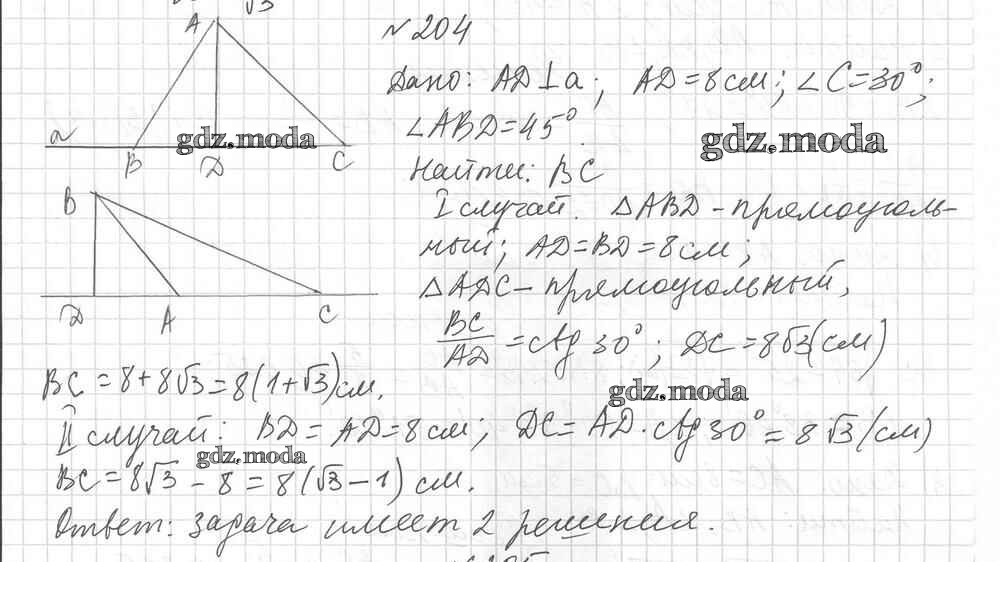 √3
A
a
B
D
C
B
D
A
C
№204
Дано: AD⊥a; AD=8см; ∠C=30°;
∠ABD=45°
Найти: BC
I случай. △ABD - прямоуголь-
ный; AD=BD=8см;
△ADC - прямоугольный,
BC/AD = ctg 30°; DC=8√3(см)
BC=8+8√3=8(1+√3)см.
II случай: BD=AD=8см; DC=AD·ctg30°=8√3(см)
BC=8√3-8=8(√3-1) см.
Ответ: задача имеет 2 решения.
gdz.moda
gdz.moda
gdz.moda
gdz.moda